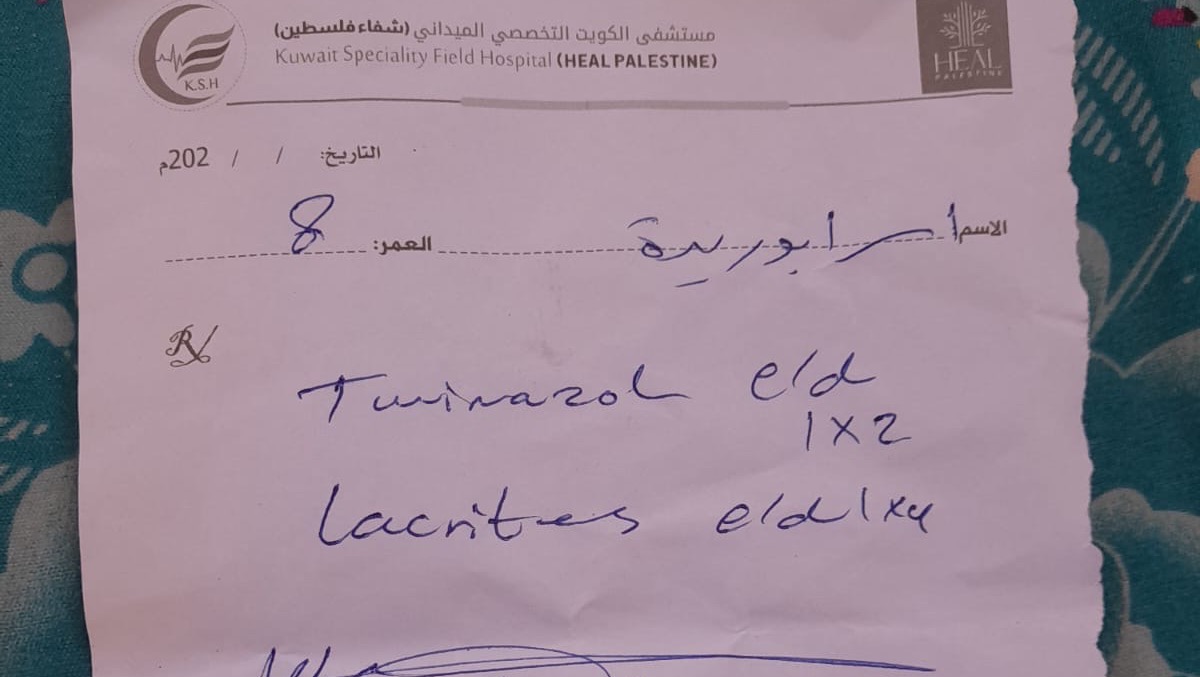 مستشفى الكويت التخصصي الميداني (شفاء فلسطين)
Kuwait Speciality Field Hospital (HEAL PALESTINE)
K.S.H
HEAL
PALESTINE
التاريخ: / / 202م
الاسم ابوريدة العمر: 8
R/
e/d
1x2
e/d 1x4